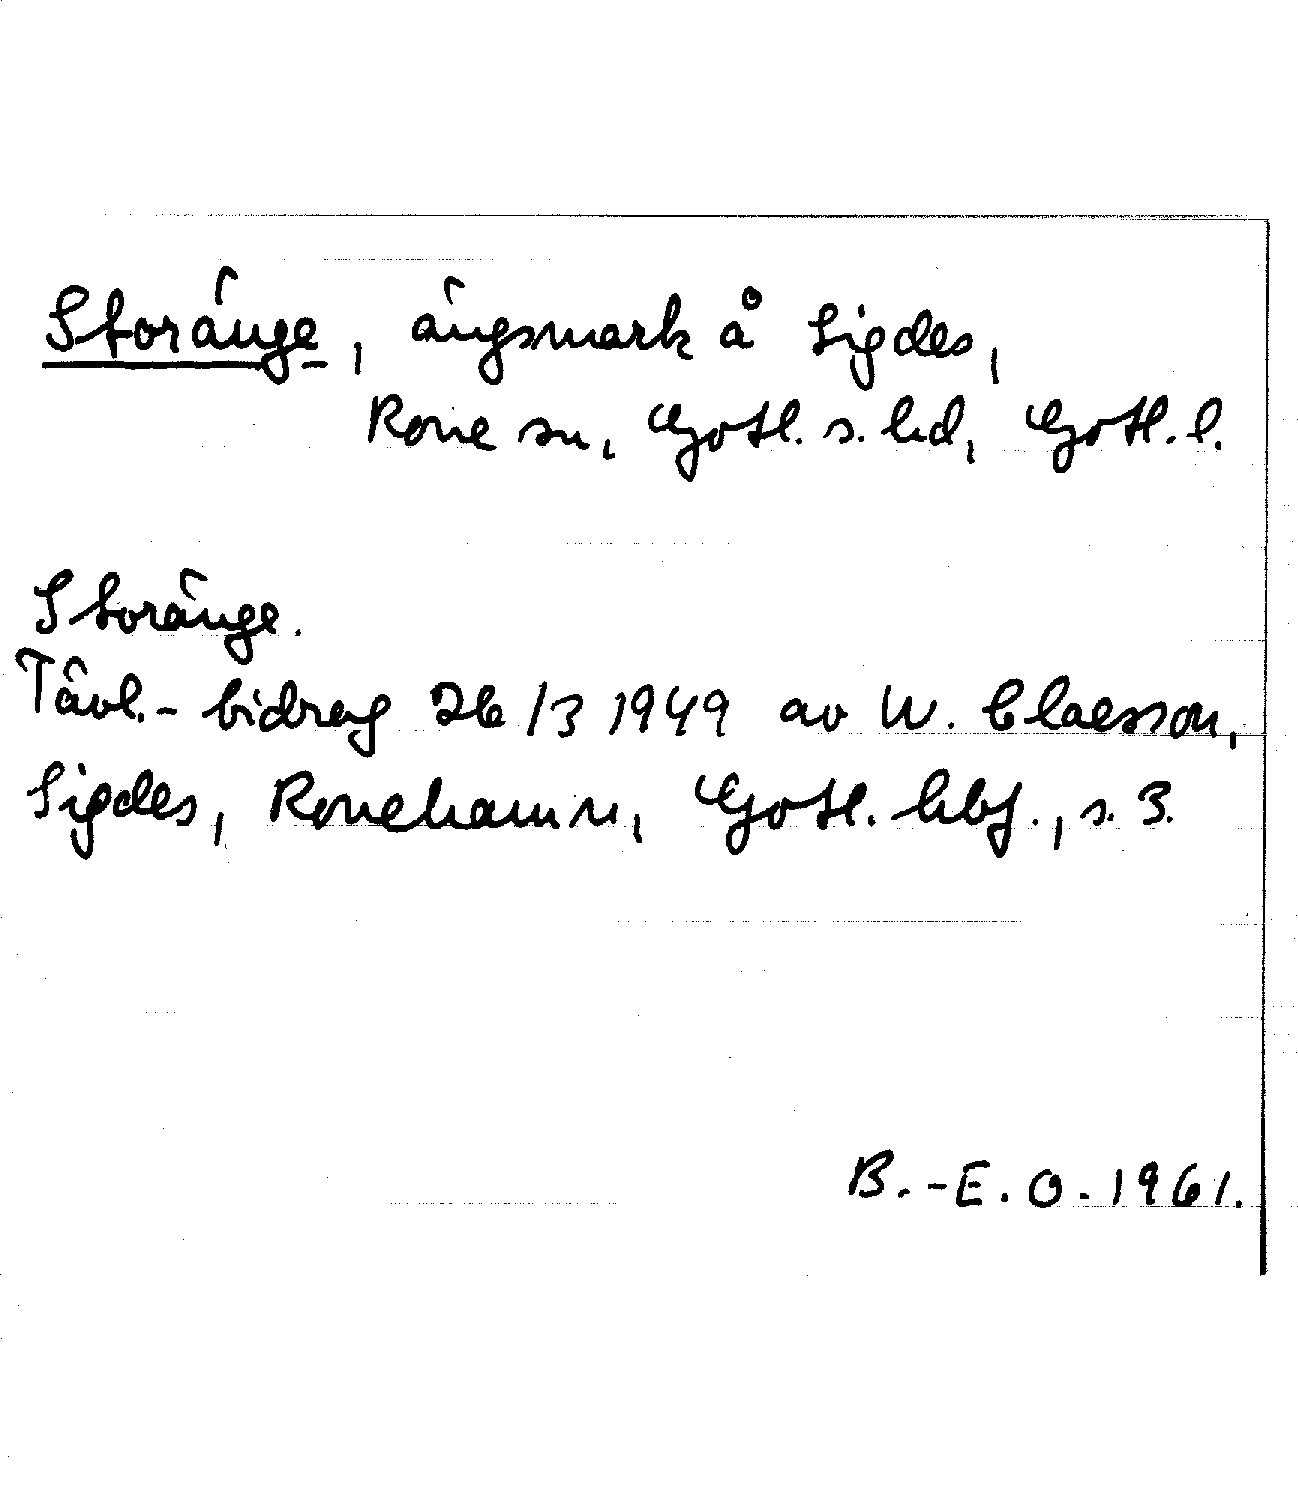 Storänge, ängsmark å Sigdes,
Rone sn, Gotl. s. hd, Gotl. l.
Storänge.
Tävl.- bidrag 26/3 1949 av W. Claesson,
Sigdes, Ronehamn, Gotl. hbf., s. 3.
B.-E. O. 1961.